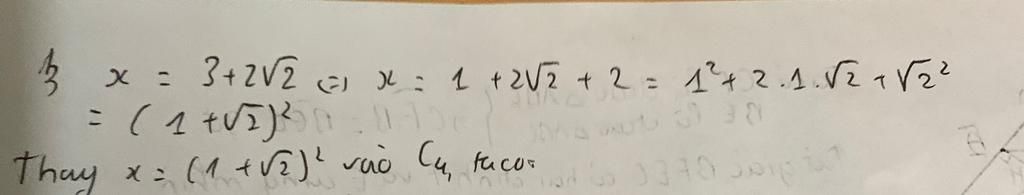 x = 3+2√2 (=) x = 1 + 2√2 + 2 = 1² + 2.1.√2 + √2²
= (1 + √2)²
Thay x = (1 + √2)² vào C4, ta có: